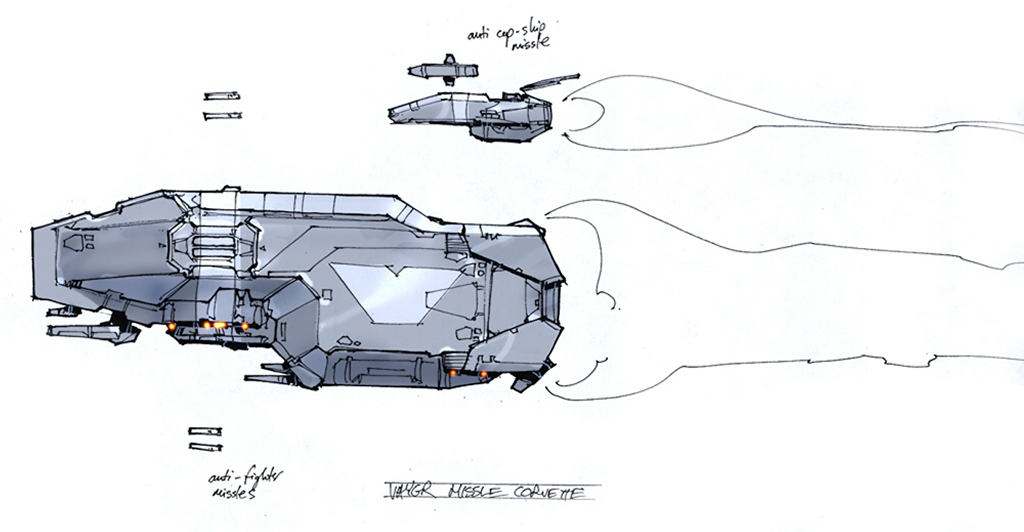 anti cap-ship
missle
anti-fighter
missles
VAYGR MISSLE CORVETTE